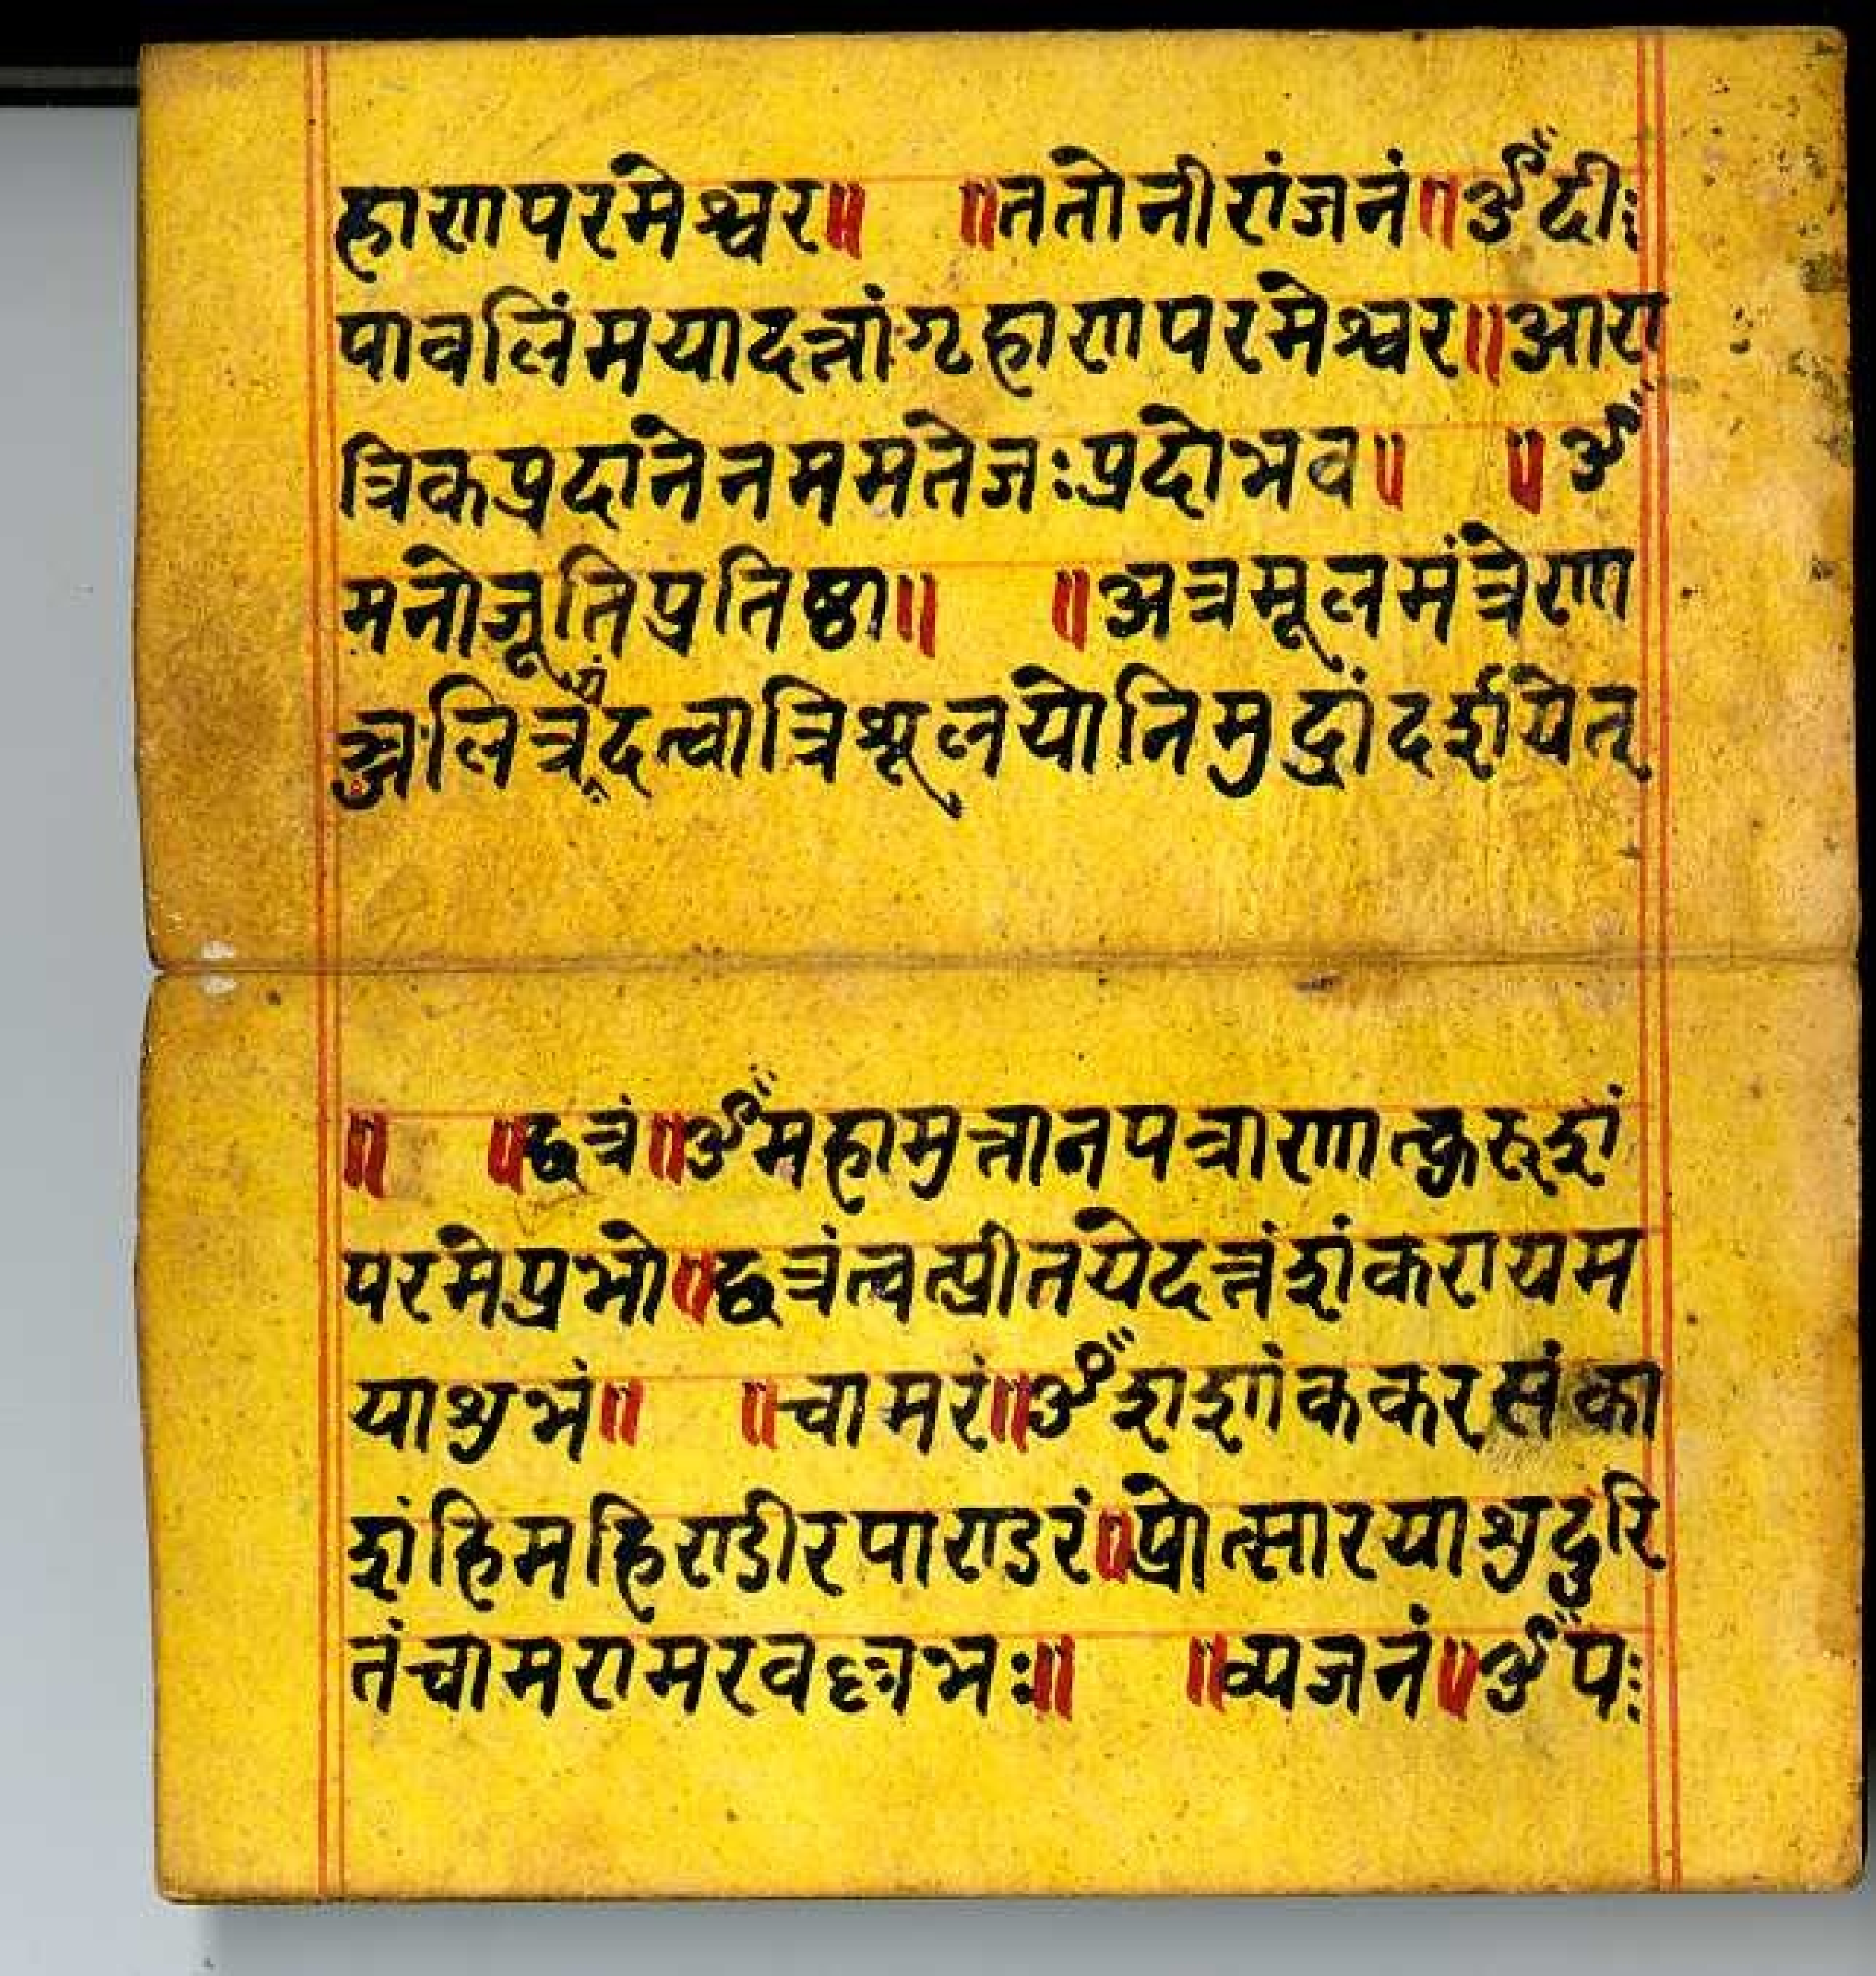 हाणपरमेश्वर॥ ॥ततोनीरांजनं॥ॐदीः
पावलिंमयादत्तांगृहाणपरमेश्वर॥आरा
त्रिकप्रदानेनममतेजःप्रदोभव॥ ॥ॐ
मनोजूतिप्रतिष्ठा॥ ॥अत्रमूलमंत्रेणा
ञ्जलित्रयंदत्वात्रिशूलयोनिमुद्रांदर्शयेत्
॥ ॥छत्रं॥ॐमहामृतातपत्राणात्कुरूशं
परमेप्रभो॥छत्रंत्वत्प्रीतयेदत्तंशंकरायम
याशुभं॥ ॥चामरं॥ॐशशांककरसंका
शंहिमहिण्डीरपाण्डरं॥प्रोत्सारयाशुदुरि
तंचामरामरवल्लभः॥ ॥व्यजनं॥ॐपः